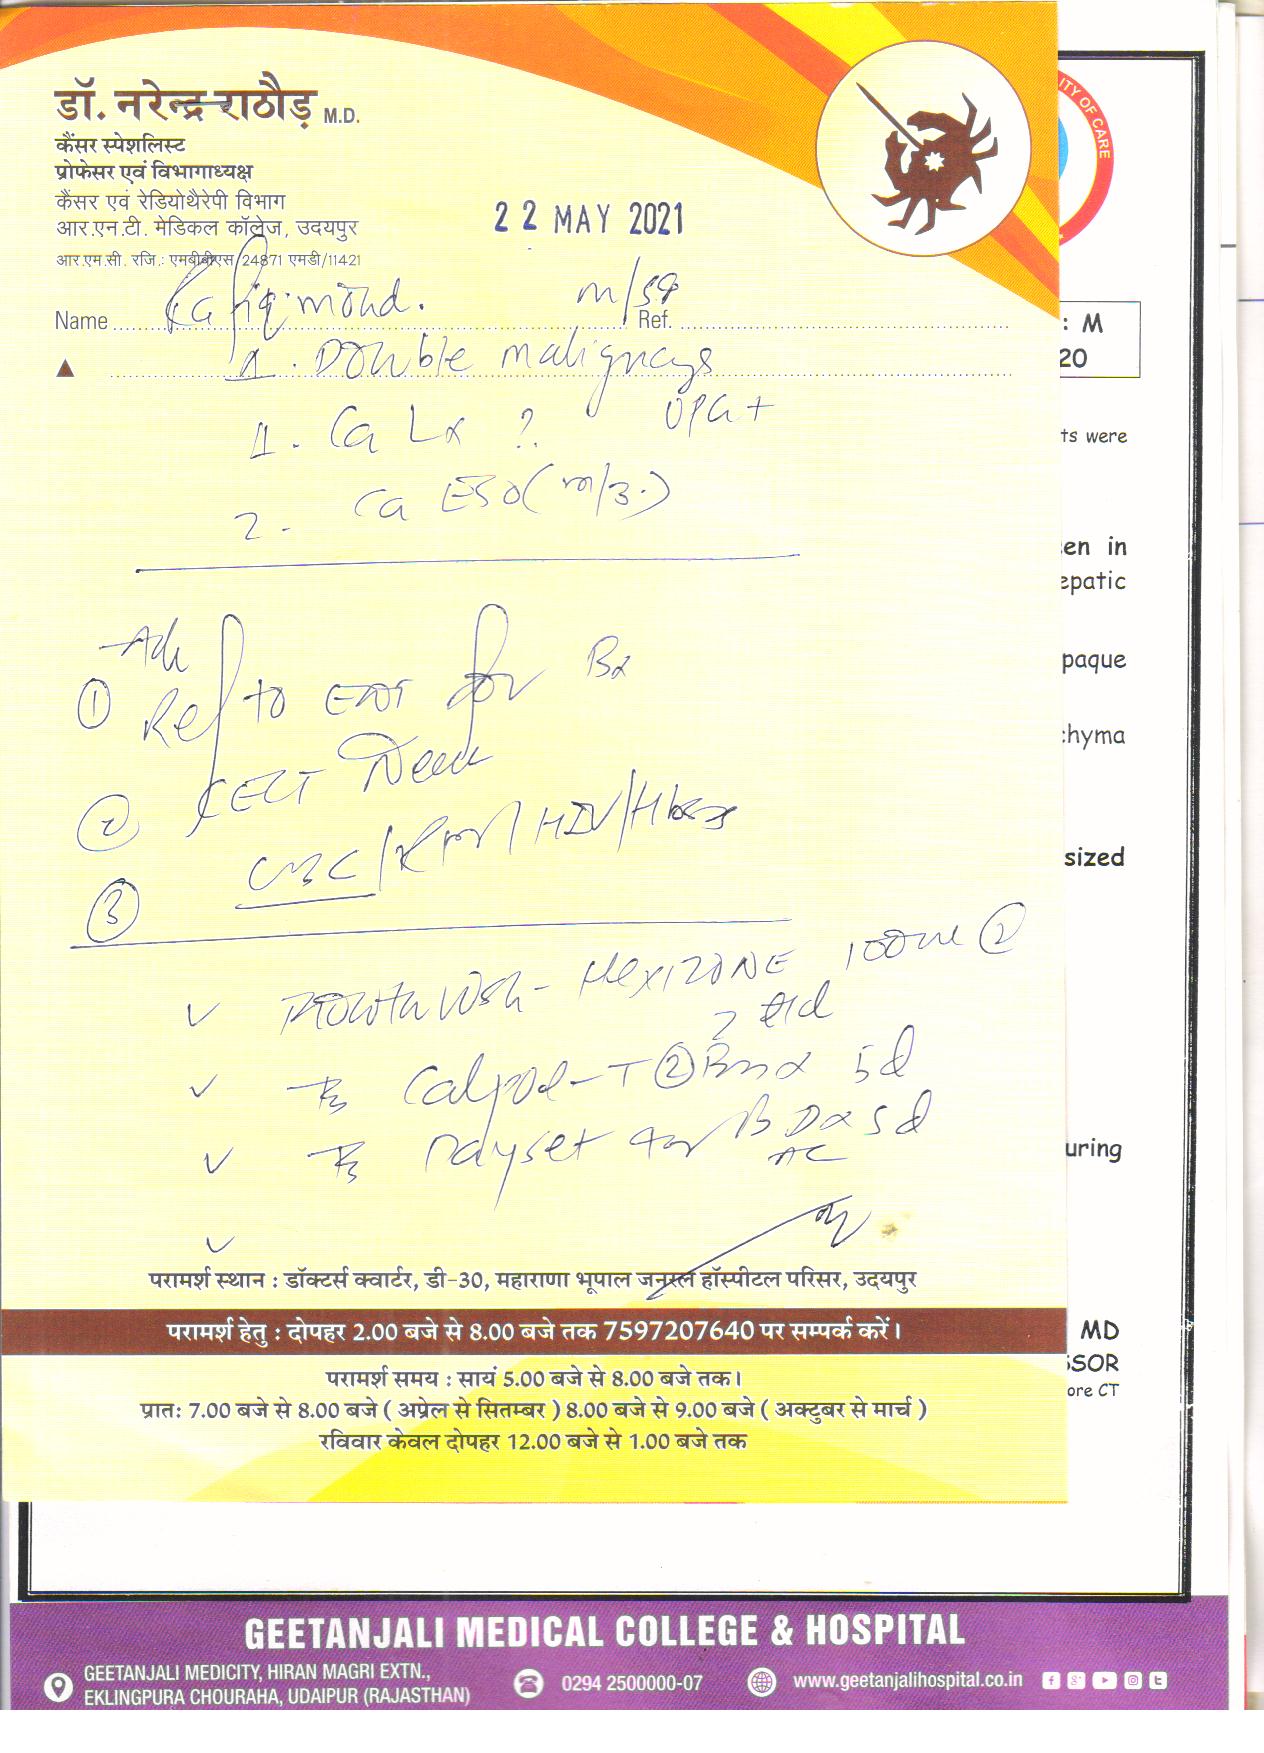 डॉ. नरेन्द्र राठौड़ M.D.
कैंसर स्पेशलिस्ट
प्रोफेसर एवं विभागाध्यक्ष
कैंसर एवं रेडियोथैरेपी विभाग
आर.एन.टी. मेडिकल कॉलेज, उदयपुर
आर.एम.सी. रजि.: एमबीबीएस/24871 एमडी/11421
22 MAY 2021
Name
Ref.
1. Double
1. Ca Lx ?
2. Ca ESO (m/3.)
① Ref to ENT for Bx
② CECT Neck
③ CBC/ /HIV/
Mouth Wsh - HEXIZONE 100ml
Calpol-T 5d
x 5d
AC
परामर्श स्थान : डॉक्टर्स क्वार्टर, डी-30, महाराणा भूपाल जनरल हॉस्पीटल परिसर, उदयपुर
परामर्श हेतु : दोपहर 2.00 बजे से 8.00 बजे तक 7597207640 पर सम्पर्क करें।
परामर्श समय : सायं 5.00 बजे से 8.00 बजे तक।
प्रातः 7.00 बजे से 8.00 बजे ( अप्रेल से सितम्बर ) 8.00 बजे से 9.00 बजे ( अक्टुबर से मार्च )
रविवार केवल दोपहर 12.00 बजे से 1.00 बजे तक
ITY OF CARE
: M
20
ts were
en in
epatic
paque
chyma
sized
uring
MD
SSOR
ore CT
GEETANJALI MEDICAL COLLEGE & HOSPITAL
GEETANJALI MEDICITY, HIRAN MAGRI EXTN.,
EKLINGPURA CHOURAHA, UDAIPUR (RAJASTHAN)
0294 2500000-07
www.geetanjalihospital.co.in